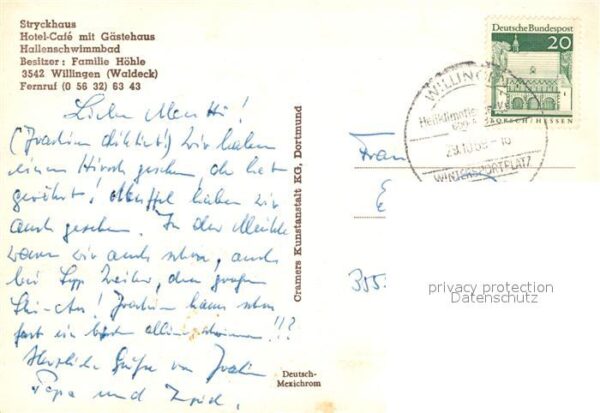 Stryckhaus
Hotel-Café mit Gästehaus
Hallenschwimmbad
Besitzer: Familie Höhle
3542 Willingen (Waldeck)
Fernruf (0 56 32) 63 43
Deutsche Bundespost
20
LORSCH/HESSEN
WILLINGEN
Heilklimatischer
29.10.68-10
WINTERSPORTPLATZ
Liebe Mutti!
(Joachim diktiert) wir haben
einen Hirsch gesehen, der hat
geröhrt! Muffel haben wir
auch gesehen. In der Mühle
waren wir auch schon, auch
bei Sepp Weiler, dem großen
Ski-As! Joachim kann schon
fast ein bißchen allein schwimmen!!?
Herzliche Grüße von Joachim
Papa und
Frau
E
355.
Cramers Kunstanstalt KG, Dortmund
Deutsch-
Mexichrom
privacy protection
Datenschutz